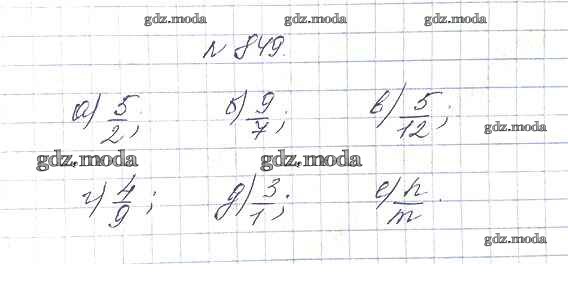 gdz.moda gdz.moda gdz.moda
N 849.
а) 5/2; б) 9/7; в) 5/12;
gdz.moda
gdz.moda gdz.moda
г) 4/9; д) 3/1; е) n/m.
gdz.moda